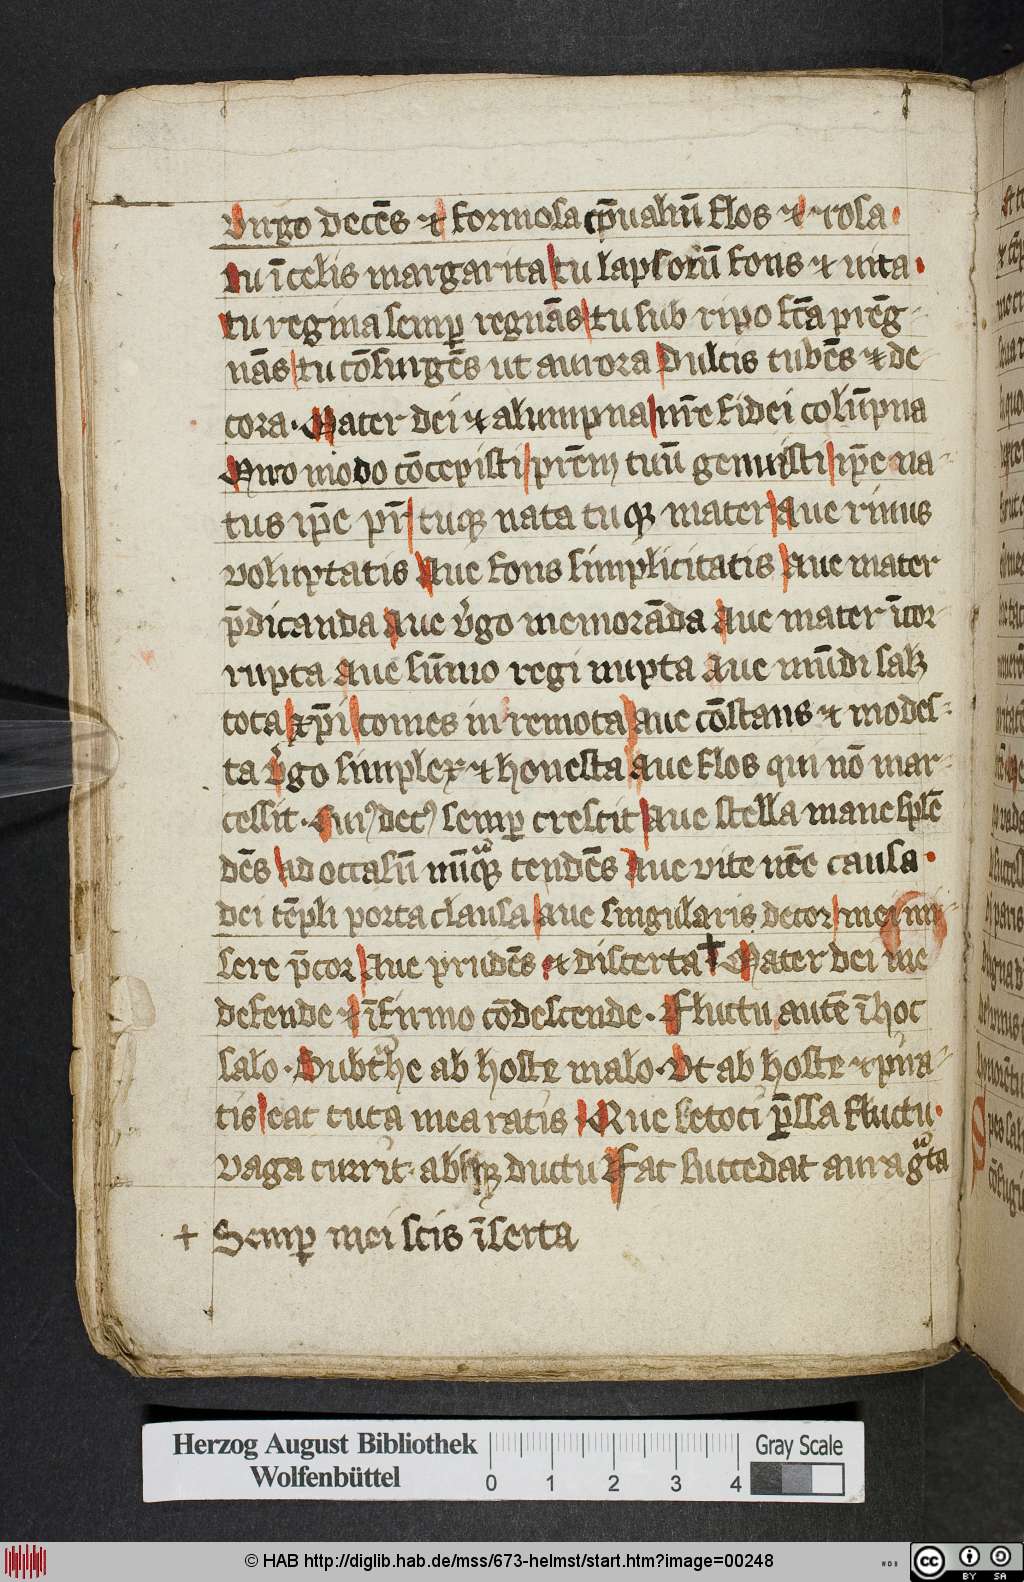 virgo decēs ⁊ formosa cp̄ualiū flos ⁊ rosa.
Tu ī celis margarita tu lapsorū fons ⁊ uita.
tu regina semꝑ regnās tu sub ripo fc̄a p̄rēg-
nās tu cōsurgēs ut aurora Dulcis tubēs ⁊ de-
cora. Mater dei ⁊ alumpna nr̄e fidei colūpna
Miro modo cōcepisti pr̄em tuū genuisti ip̄e na-
tus ip̄e pr̄ tuqꝫ nata tuqꝫ mater Aue riuus
voluptatis Aue fons simplicitatis Aue mater
p̄dicanda aue v̓go memorāda aue mater īcor-
rupta aue sūmo regi nupta aue mūdi salꝫ
tota ⁊ p̄i comes in remota aue cōstans ⁊ modes-
ta v̓go simplex ⁊ honesta aue flos qui nō mar-
cessit. Cuiꝰ decꝰ semꝑ crescit Aue stella mane splē
dēs ad occasū nūqꝫ tendēs Aue vite nr̄e causa.
dei tēpli porta clausa aue singularis decor mei mi-
sere p̄cor Aue prudēs ⁊ discerta ✝ Mater dei me
defende ⁊ īfirmo cōdescende. Fluctu autē ī hoc
salo. Subt̓he ab hoste malo. Vt ab hoste ⁊ pira-
tis eat tuta mea ratis. Que ketoci p̄lla fluctu.
vaga currit. absqꝫ ductu Fac succedat aura gͣta
+ Semꝑ mei scis īserta
Herzog August Bibliothek
Wolfenbüttel
0 1 2 3 4
Gray Scale
© HAB http://diglib.hab.de/mss/673-helmst/start.htm?image=00248
WDB
cc BY SA